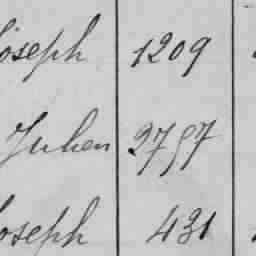 Joseph 1209
Julien 2757
Joseph 431